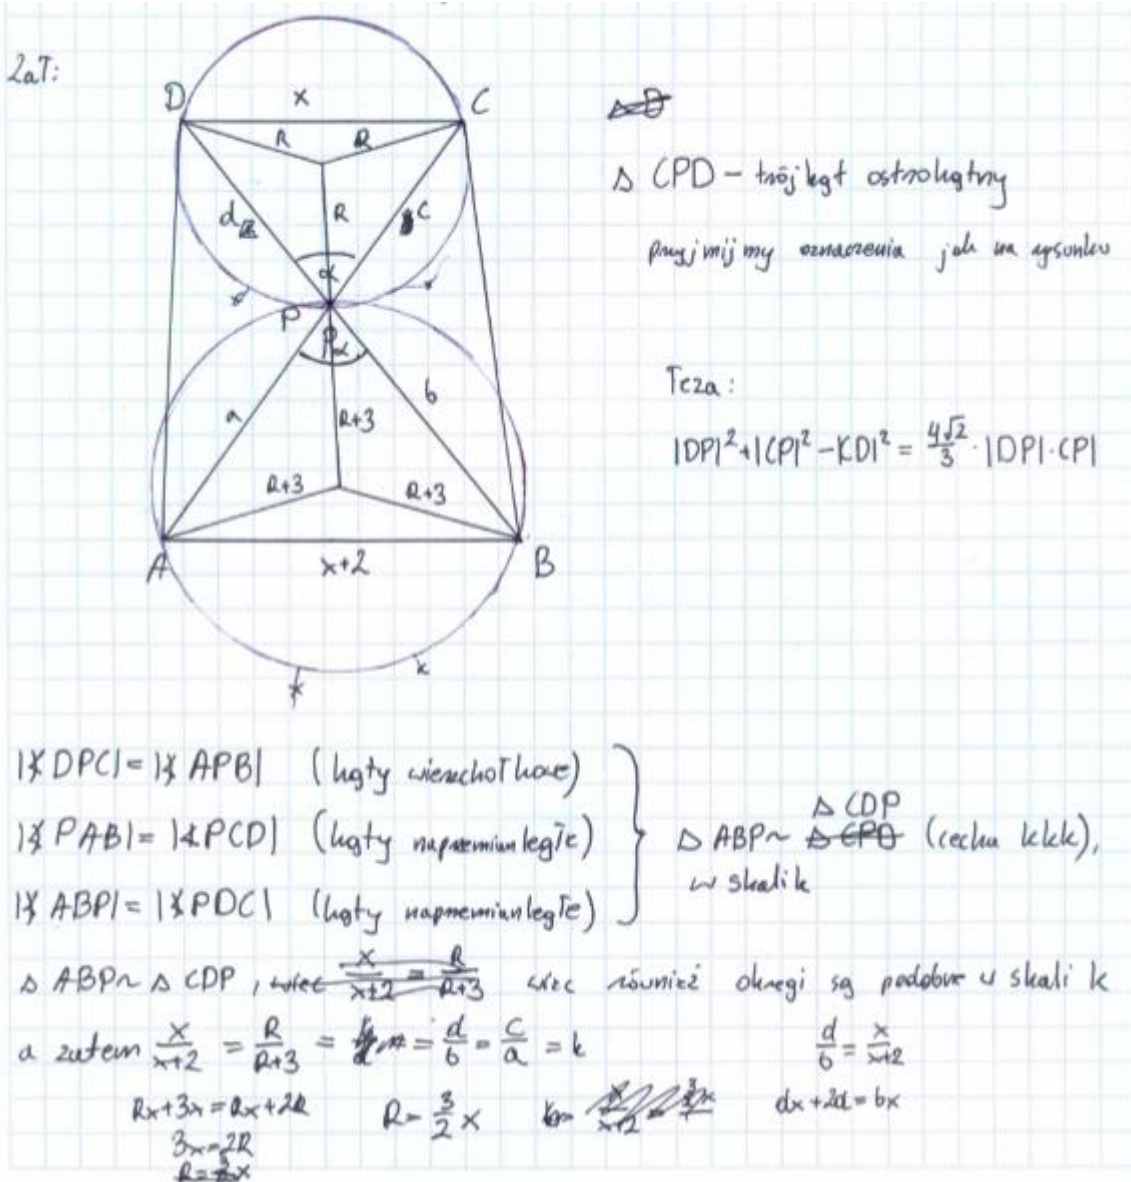 ZaT:
D x C
R R
d R c
α
P
α
a b
R+3
R+3 R+3
A x+2 B
k
Δ CPD – trójkąt ostrokątny
przyjmijmy oznaczenia jak na rysunku
Teza:
|DP|²+|CP|²-|CD|² = 4√2/3 · |DP|·|CP|
|∢DPC|=|∢APB| (kąty wierzchołkowe)
|∢PAB|=|∢PCD| (kąty naprzemianległe)
|∢ABP|=|∢PDC| (kąty naprzemianległe)
Δ ABP ~ Δ CDP (cecha kkk),
w skali k
Δ ABP ~ Δ CDP, więc również okręgi są podobne w skali k
a zatem x/x+2 = R/R+3 = d/b = c/a = k
d/b = x/x+2
Rx+3x=Rx+2R
R=3/2 x
dx+2d=bx
3x=2R